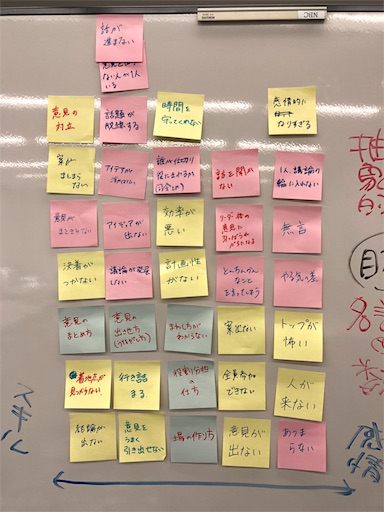 話が
進まない
ない人が1人
いる
意見の
対立
話題が
脱線する
時間を
守ってくれない
感情的に
なりすぎる
案が
まとまら
ない
アイデアが
誰が仕切り
役にまわるか
話を聞か
ない
1人、議論の
輪に入れない
意見が
まとまらない
アイデアが
出ない
効率が
悪い
リーダー格の
意見に
無言
決着が
つかない
議論が発展
しない
計画性
がない
とんちんかん
なこと
を言ってしまう
やる気の差
意見の
まとめ方
意見の
出させ方
まわし方が
わからない
案出ない
トップが
怖い
着地点が
見つからない
行き詰
まる
役割分担
の
仕方
全員参加
できない
人が
来ない
結論が
出ない
意見を
うまく
引き出せない
場の作り方
意見が
出ない
あつま
らない
スキル
感情